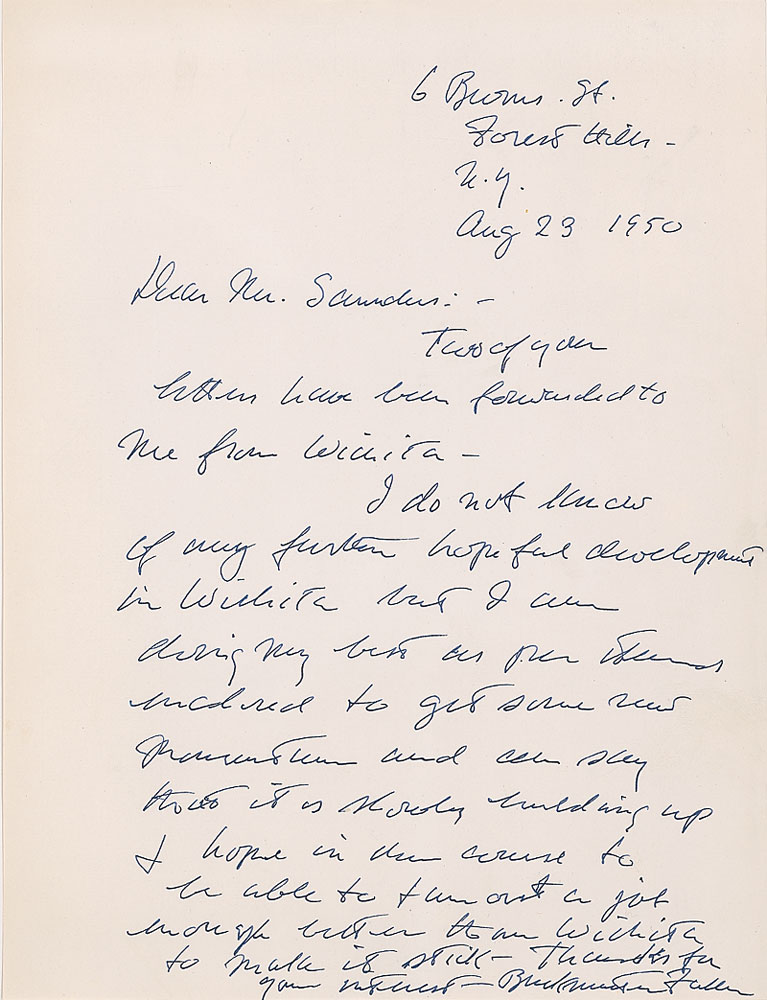 6 Burns. St.
Forest Hills -
N.Y.
Aug 23 1950
Dear Mr. Saunders: -
Two of your
letters have been forwarded to
me from Wichita -
I do not know
of any further hopeful development
in Wichita but I am
doing my best as per items
enclosed to get some new
momentum and can say
that it is slowly building up
I hope in due course to
be able to turn out a job
enough better than Wichita
to make it stick - Thanks for
your interest - Buckminster Fuller